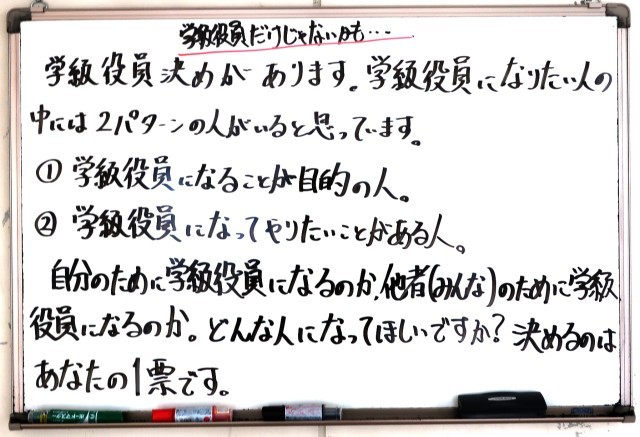 学級役員だけじゃないかも…
学級役員決めがあります。学級役員になりたい人の
中には2パターンの人がいると思っています。
① 学級役員になることが目的の人。
② 学級役員になってやりたいことがある人。
自分のために学級役員になるのか、他者(みんな)のために学級
役員になるのか。どんな人になってほしいですか?決めるのは
あなたの1票です。